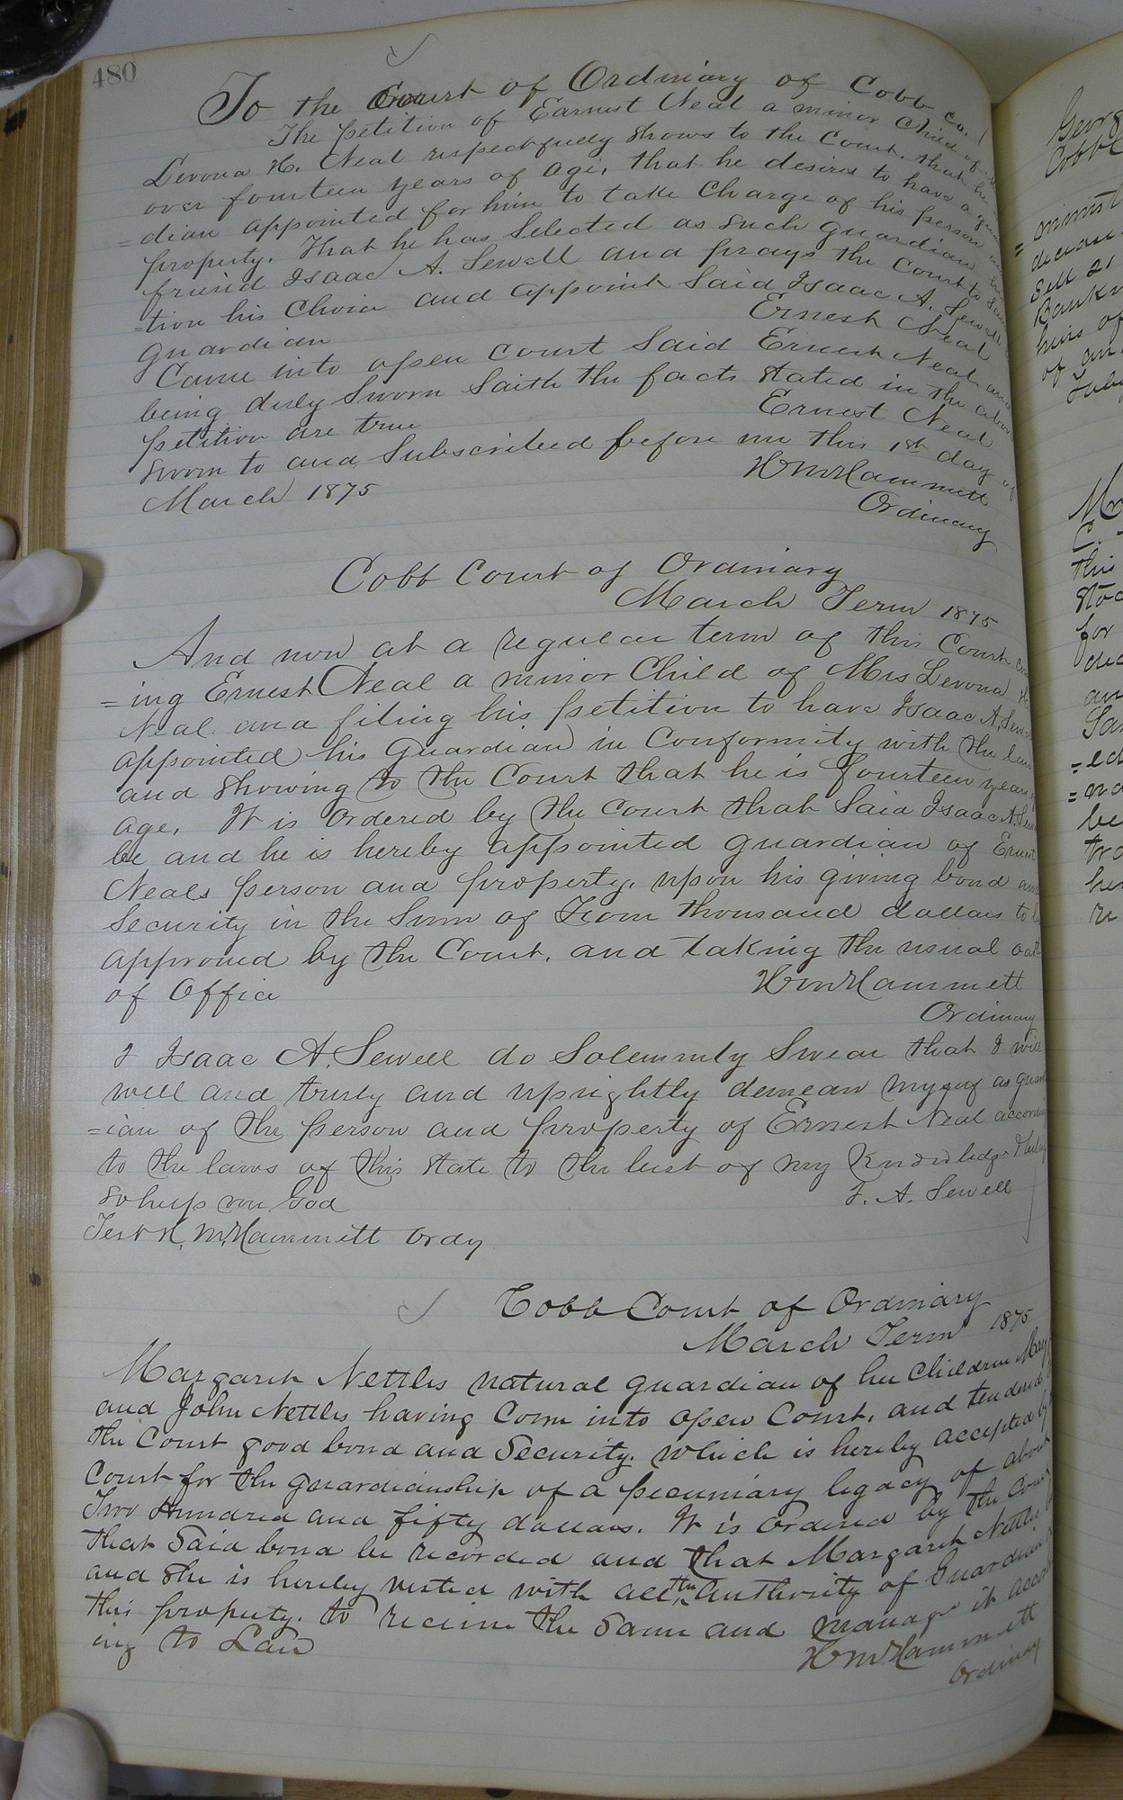 480
To the Court of Ordinary of Cobb Co.
The petition of Earnest Neal a minor Child of
Levona H. Neal respectfully shows to the Court, that he
over fourteen years of age, that he desires to have a guar
=dian appointed for him to take Charge of his person and
property. That he has Selected as Such guardian his
friend Isaac A. Sewell and prays the Court to Sanc
=tion his Choice and appoint Said Isaac A. Sewell
guardian
Ernest Neal
Came into open Court Said Ernest Neal and
being duly Sworn Saith the facts Stated in the above
petition are true
Ernest Neal
Sworn to and Subscribed before me this 1st day of
March 1875
H M Hammett
Ordinary
Cobb Court of Ordinary
March Term 1875
And now at a regular term of this Court com
=ing Ernest Neal a minor Child of Mrs Levona H
Neal and filing his petition to have Isaac A. Sewell
appointed his Guardian in Conformity with the law
and Showing to the Court that he is fourteen years
age. It is Ordered by the Court that Said Isaac A. Sewell
be and he is hereby appointed guardian of Ernest
Neals person and property, upon his giving bond and
Security in the Sum of dollars to be
approved by the Court, and taking the usual oath
of Office
H M Hammett
Ordinary
I Isaac A. Sewell do Solemnly Swear that I will
well and truly and uprightly demean myself as guard
=ian of the person and property of Ernest Neal according
to the laws of this State to the best of my Knowledge & belief
So help me God
I. A. Sewell
Test H. M. Hammett Ordy
Cobb Court of Ordinary
March Term 1875
Margaret Nettles natural guardian of her Children Mary
and John Nettles having Come into open Court, and tendered
the Court good bond and Security, which is hereby accepted by
Court for the guardianship of a pecuniary legacy of about
Two Hundred and fifty dollars. It is Ordered by the Court
that Said bond be recorded and that Margaret Nettles
and She is hereby vested with all the authority of Guardian
this property, to receive the Same and manage it accord
ing to Law
H M Hammett
Ordinary